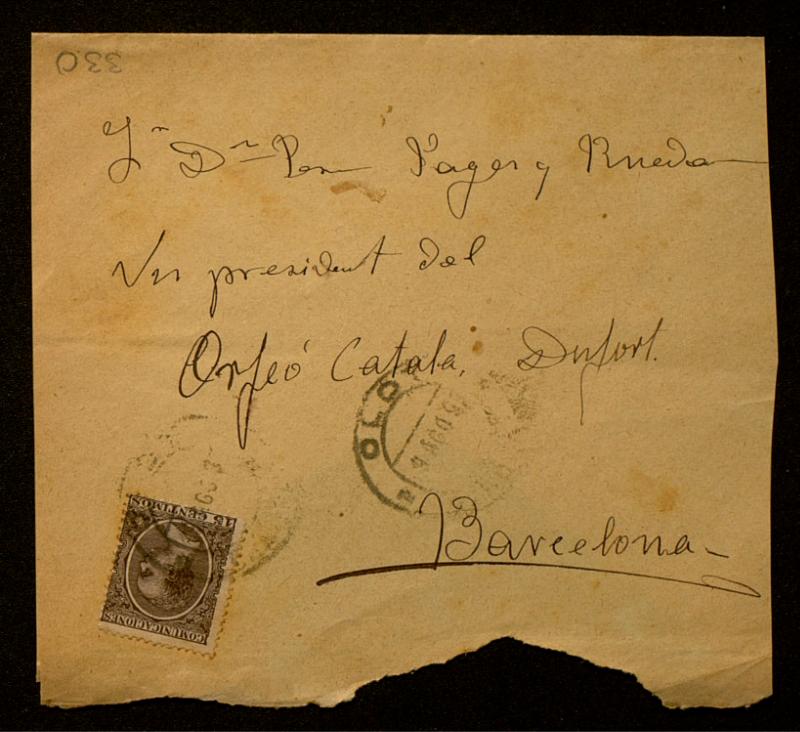 330
Sr. Dn. Pere Pages y Rueda
Vis president del
Orfeó Català, Dufort.
OLO
Barcelona
15 CENTIMOS
COMUNICACIONES